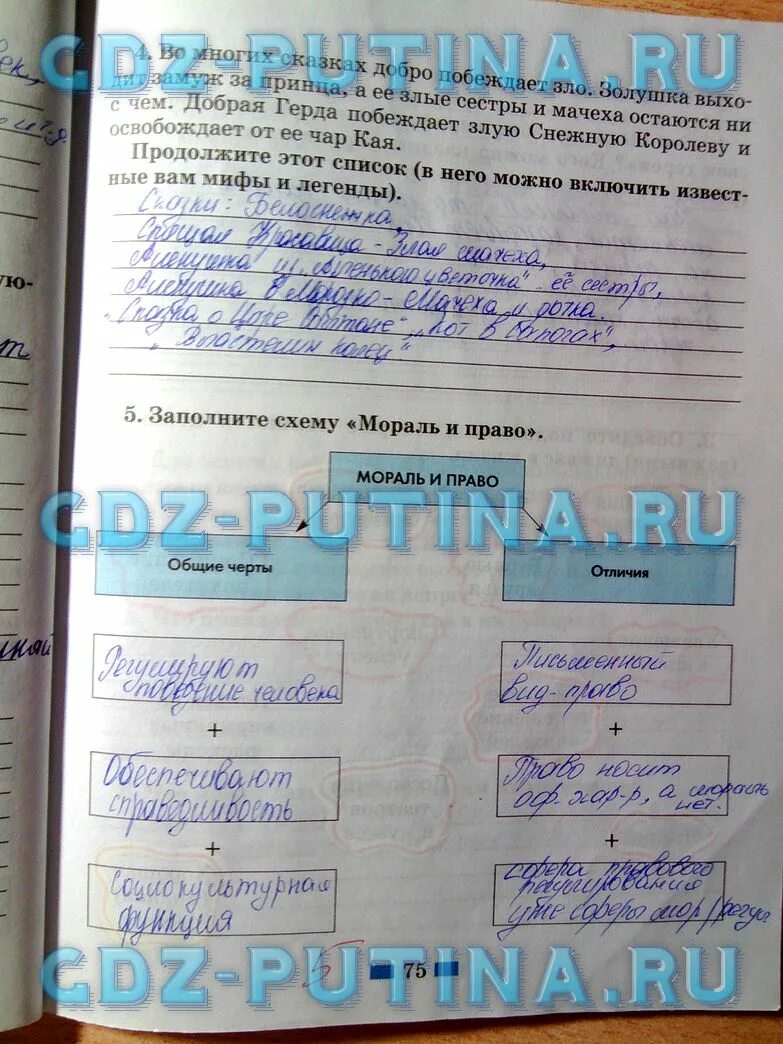 GDZ-PUTINA.RU
4. Во многих сказках добро побеждает зло. Золушка выхо-
дит замуж за принца, а ее злые сестры и мачеха остаются ни
с чем. Добрая Герда побеждает злую Снежную Королеву и
освобождает от ее чар Кая.
Продолжите этот список (в него можно включить извест-
ные вам мифы и легенды).
Сказки: Белоснежка,
Спящая Красавица - Злая мачеха,
Аленушка из „Аленького цветочка" - её сестры,
Аленушка в Морозко - Мачеха и дочка.
„Сказка о Царе Салтане", „Кот в сапогах",
„Властелин колец"
5. Заполните схему «Мораль и право».
МОРАЛЬ И ПРАВО
GDZ-PUTINA.RU
Общие черты
Отличия
Регулируют
поведение человека
Письменный
вид - право
+
+
Обеспечивают
справедливость
Право носит
оф. хар-р, а мораль
нет.
+
+
Социокультурная
функция
сфера правового
регулирования
уже сферы мор. регул
GDZ-PUTINA.RU
5
75
ек,
и т.д.
ую-